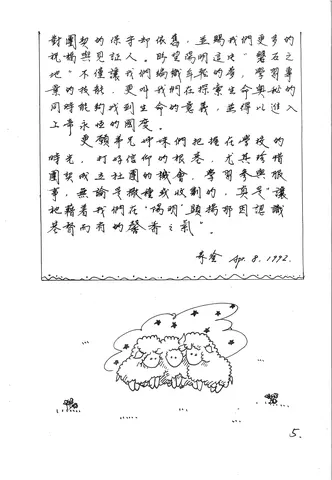 對團契的保守卻依舊，並賜我們更多的
祝福與見証人。盼望陽明這片“磐石之
地”不僅讓我們編織年輕的夢，學習專
業的技能，更叫我們在探索生命與信仰
同時能夠找到生命的意義，並得以進入
上帝永恆的國度。
更願弟兄姊妹們把握在學校的
時光，打好信仰的根基，尤其珍惜
團契或主社團的機會，學習參與服
事，無論是撒種或收割的，真是“讓
祂藉著我們在‘陽明’顯揚那因認識
基督而有的馨香之氣”。
Ap. 8. 1992.
5.